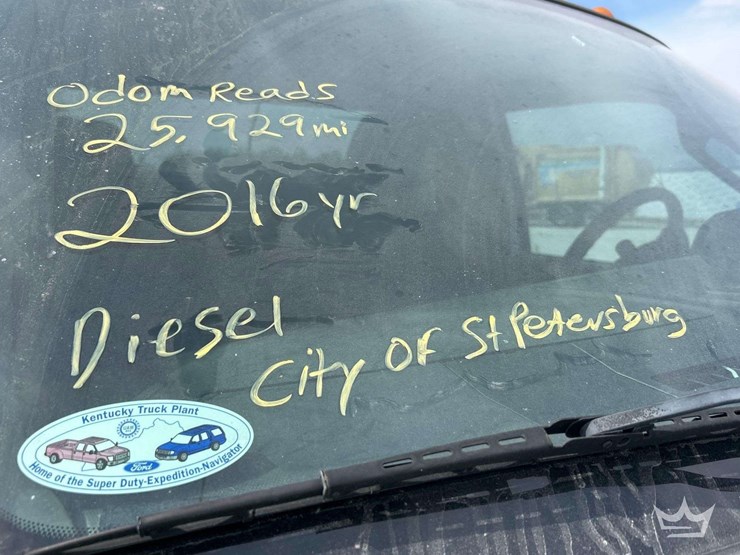 Odom Reads
25,929 mi
2016 yr
Diesel
City OF St. Petersburg
Kentucky Truck Plant
Ford
Home of the Super Duty-Expedition-Navigator